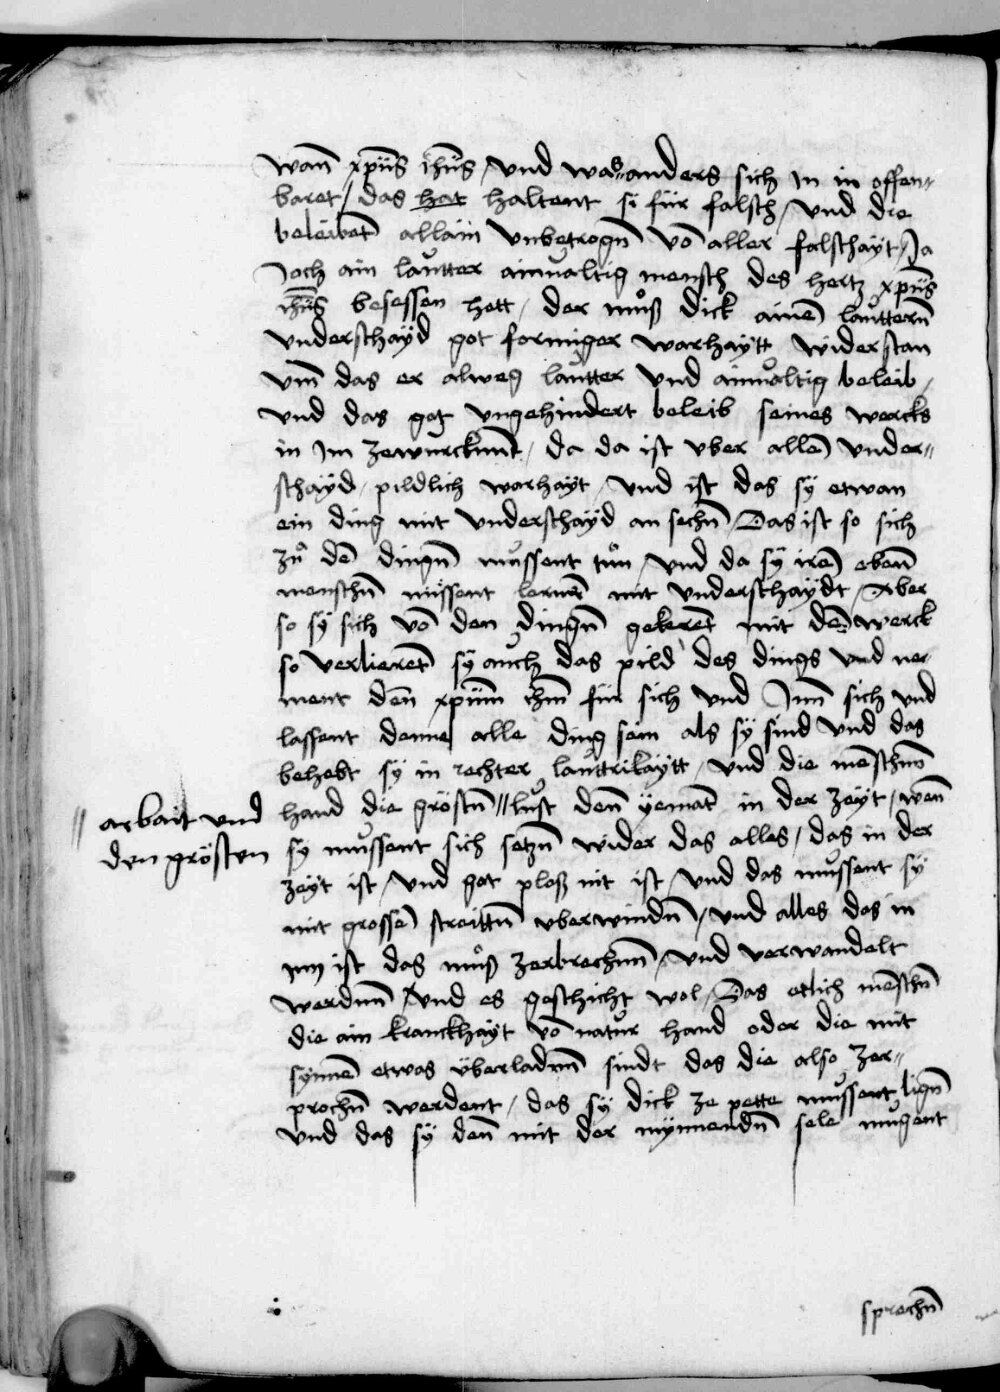 wann xp̄us ih̄us / vnd was anders sich in in offen„
baret / das hat haltent si für falsch / vnd die
beleibet̄ allain vnbetrogn̄ vō aller falschayt / Ja
Joch ain lautter ainualtig mensch des hertz xp̄us
ih̄us besessen hett / der muͦß dick ainē lauttern̄
vnderschayd got formiger warhaytt widerstan
vm̄ das er alweg lautter vnd ainualtig beleib /
vnd das got vngehindert beleib seines wercks
in Im zewurckun̄t / da da ist vber allē vnder„
schayd / pildlich warhayt / vnd ist das sÿ etwan
ein ding mit vnderschayd an sechn̄ / Das ist so sich
zuͦ dē dingn̄ mussent tuͦn / vnd da sÿ irē ebenn̄
menschn̄ missent lernē mit vnderschaydt / Aber
so sÿ sich vō den dingn̄ gekeret̄ mit dē werck
so verlieret̄ sÿ auch das pild des dings vnd ne„
ment den̄ xp̄um ih̄m für sich vnd Inn̄ sich vnd
lassent denne alle ding sein als sÿ sind vnd das
behebt sÿ in rechter lauttrikaytt / vnd die menschn̄
hand die gröstn̄ // lust denn̄ yemāt in der zeyt / wen̄
arbait vnd
den grösten
sÿ mussent sich setzn̄ wider das alles / das in der
zeyt ist / vnd got ploß nit ist / vnd das mussent sÿ
mit grossē streittn̄ vberwindn̄ / vnd alles das in
yn ist das muͦß zerbrechnn̄ / vnd verwandelt
werdnn̄ / vnd es geschicht wol / Das etlich menschn̄
die ain kranckhayt vō natur hand oder die mit
synnē etwas vberladnn̄ sindt das die also zer„
prochn̄ werdent / das sÿ dick ze pette mussent lign̄
vnd das sÿ den̄ mit der mynnendn̄ sele mugent
sprechn̄